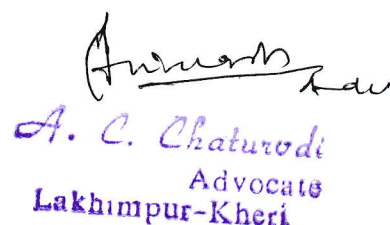 Adv
A. C. Chaturvedi
Advocate
Lakhimpur-Kheri